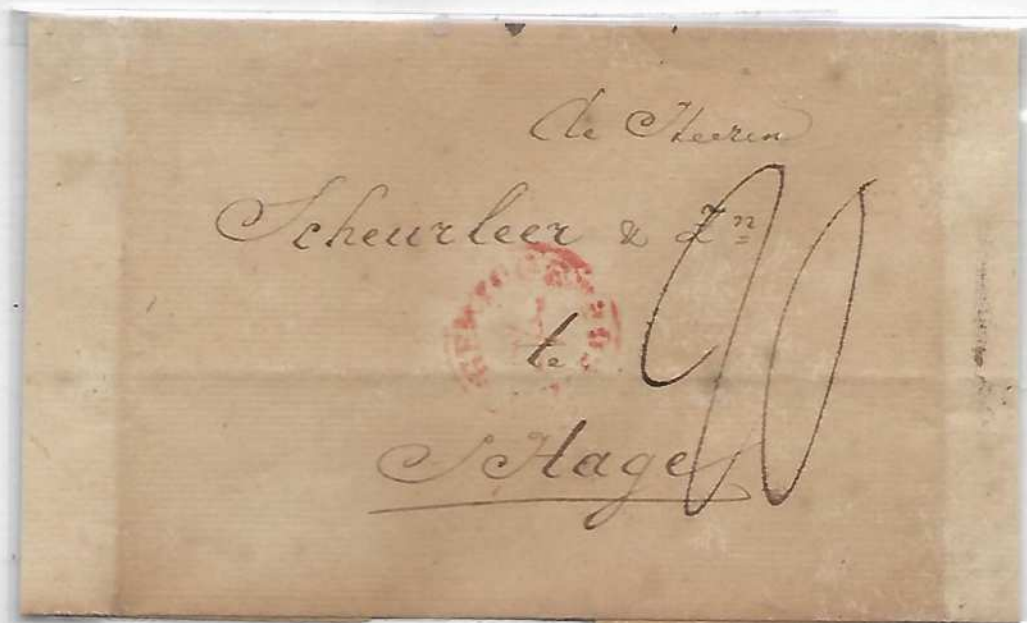 de Heeren
Scheurleer & Zn
20
te
S Hage